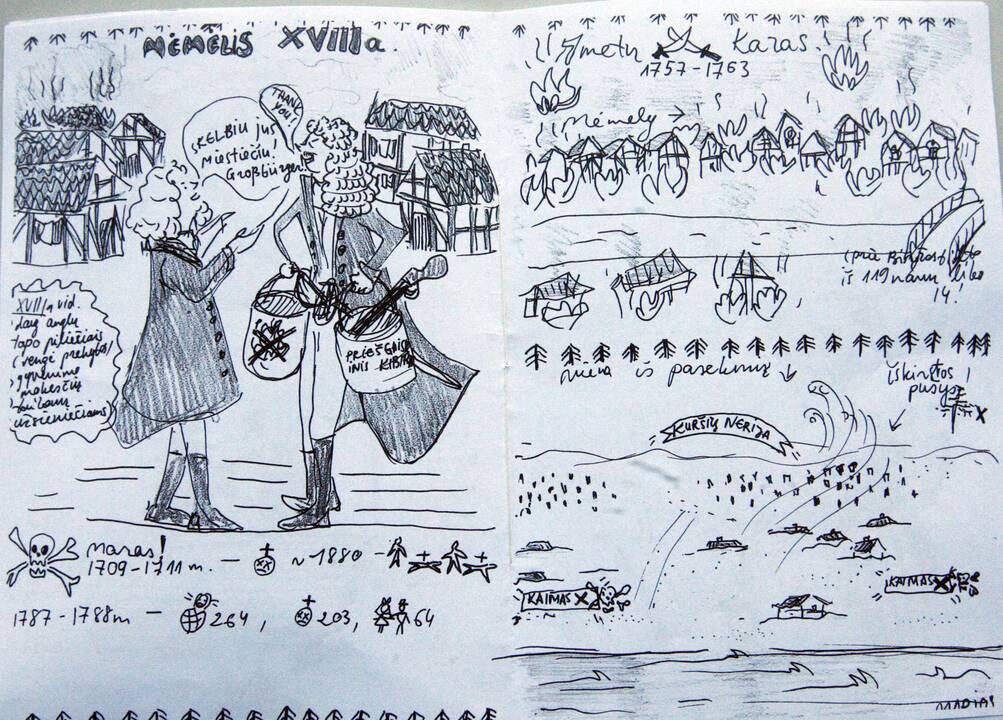 MĖMELIS XVIII a.
THANK
YOU!
SKELBIU JUS
MIESTIEČIU!
Großbürger!
XVIII a vid.
daug anglų
tapo piliečiais
(rengė prekybos)
gyvenimo
mokesčių
užsieniečiams)
PRIEŠGAISRINIS KIBIRAS
Maras!
1709-1711 m. — ~1880 -
1787-1788m — 264, 203, 64
7 metų Karas.
1757-1763
Mėmely →
(prie Biržos) liko
iš 119 namų liko
14!
viena iš pasekmių
iškirstos
pušys!
KURŠIŲ NERIJA
KAIMAS X
KAIMAS X